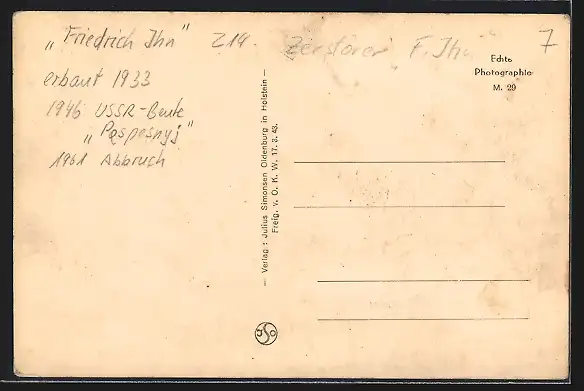 "Friedrich Ihn" Z14.
erbaut 1933
1946 USSR-Beute
"Pospesnyj"
1961 Abbruch
Zerstörer "F. Ihn"
7
Echte
Photographie
M. 29
— Verlag: Julius Simonsen Oldenburg in Holstein —
Freig. v. O. K. W. 17. 3. 43.